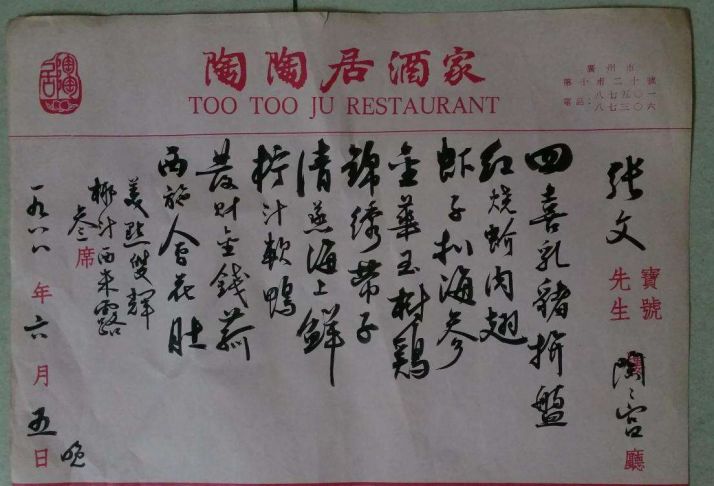 陶陶居
陶陶居酒家
TOO TOO JU RESTAURANT
廣州市
第十甫二十號
電話：八七五〇一
八七三〇六
张文 寶號 先生 陶〻宫 廳
四喜乳豬拼盤
红燒蚧肉翅
虾子扒海參
金華玉树鷄
錦绣帶子
清蒸海上鲜
柠汁軟鴨
發财金錢菰
西施人百花肚
美點雙輝
椰汁西米露
叁席
一九八八年六月五日晚